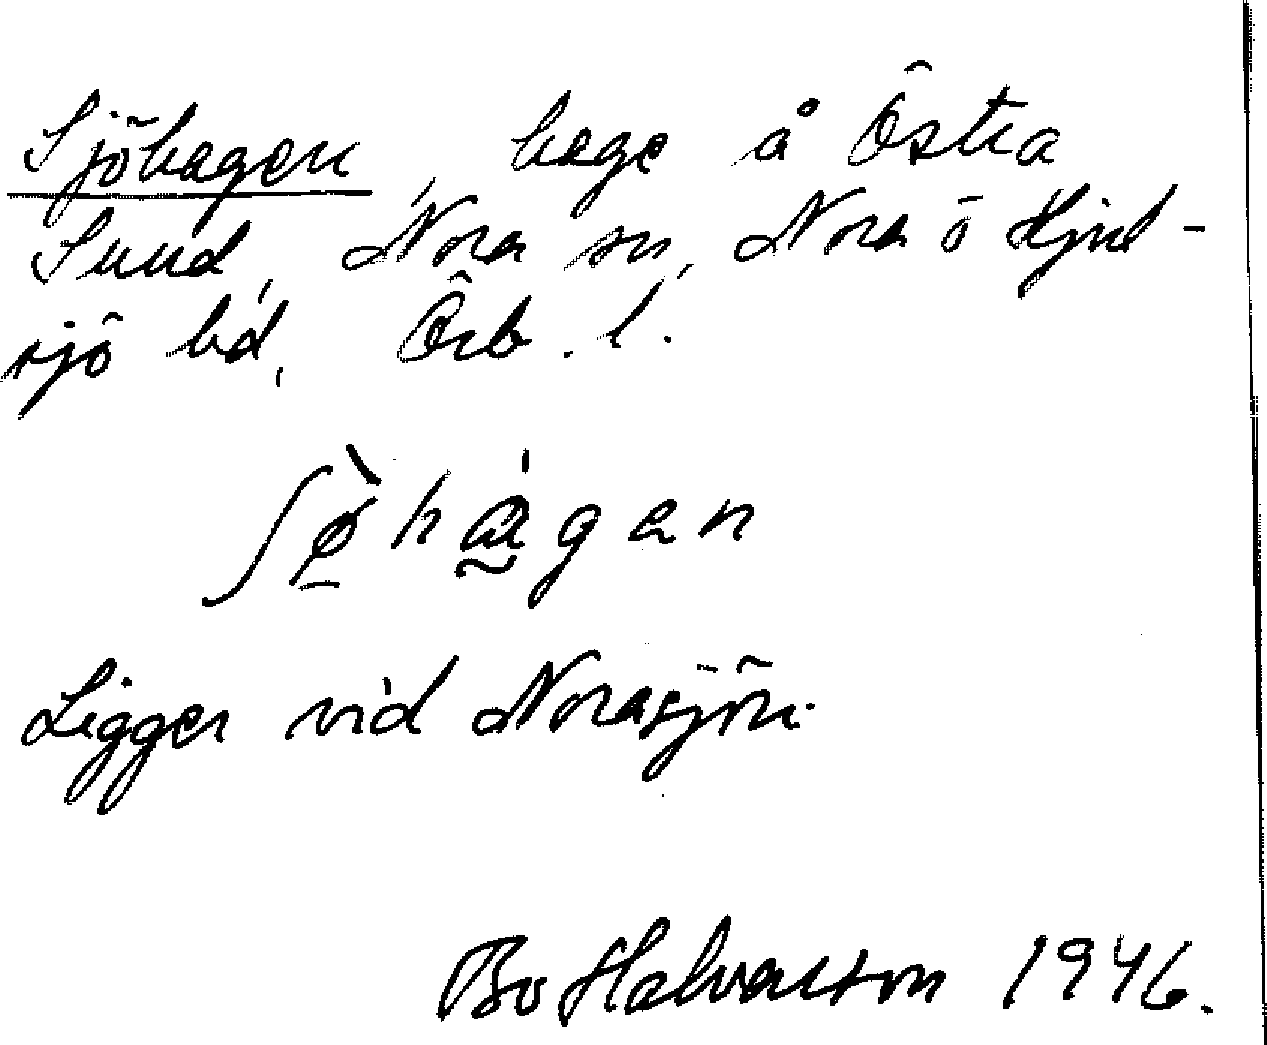 Sjöhagen, hage å Östra
Sund, Nora sn, Nora o Hjul-
sjö bd, Örb. l.
ʃø̠̀hɑ̰́gen
Ligger vid Norasjön.
Bo Halvarson 1946.